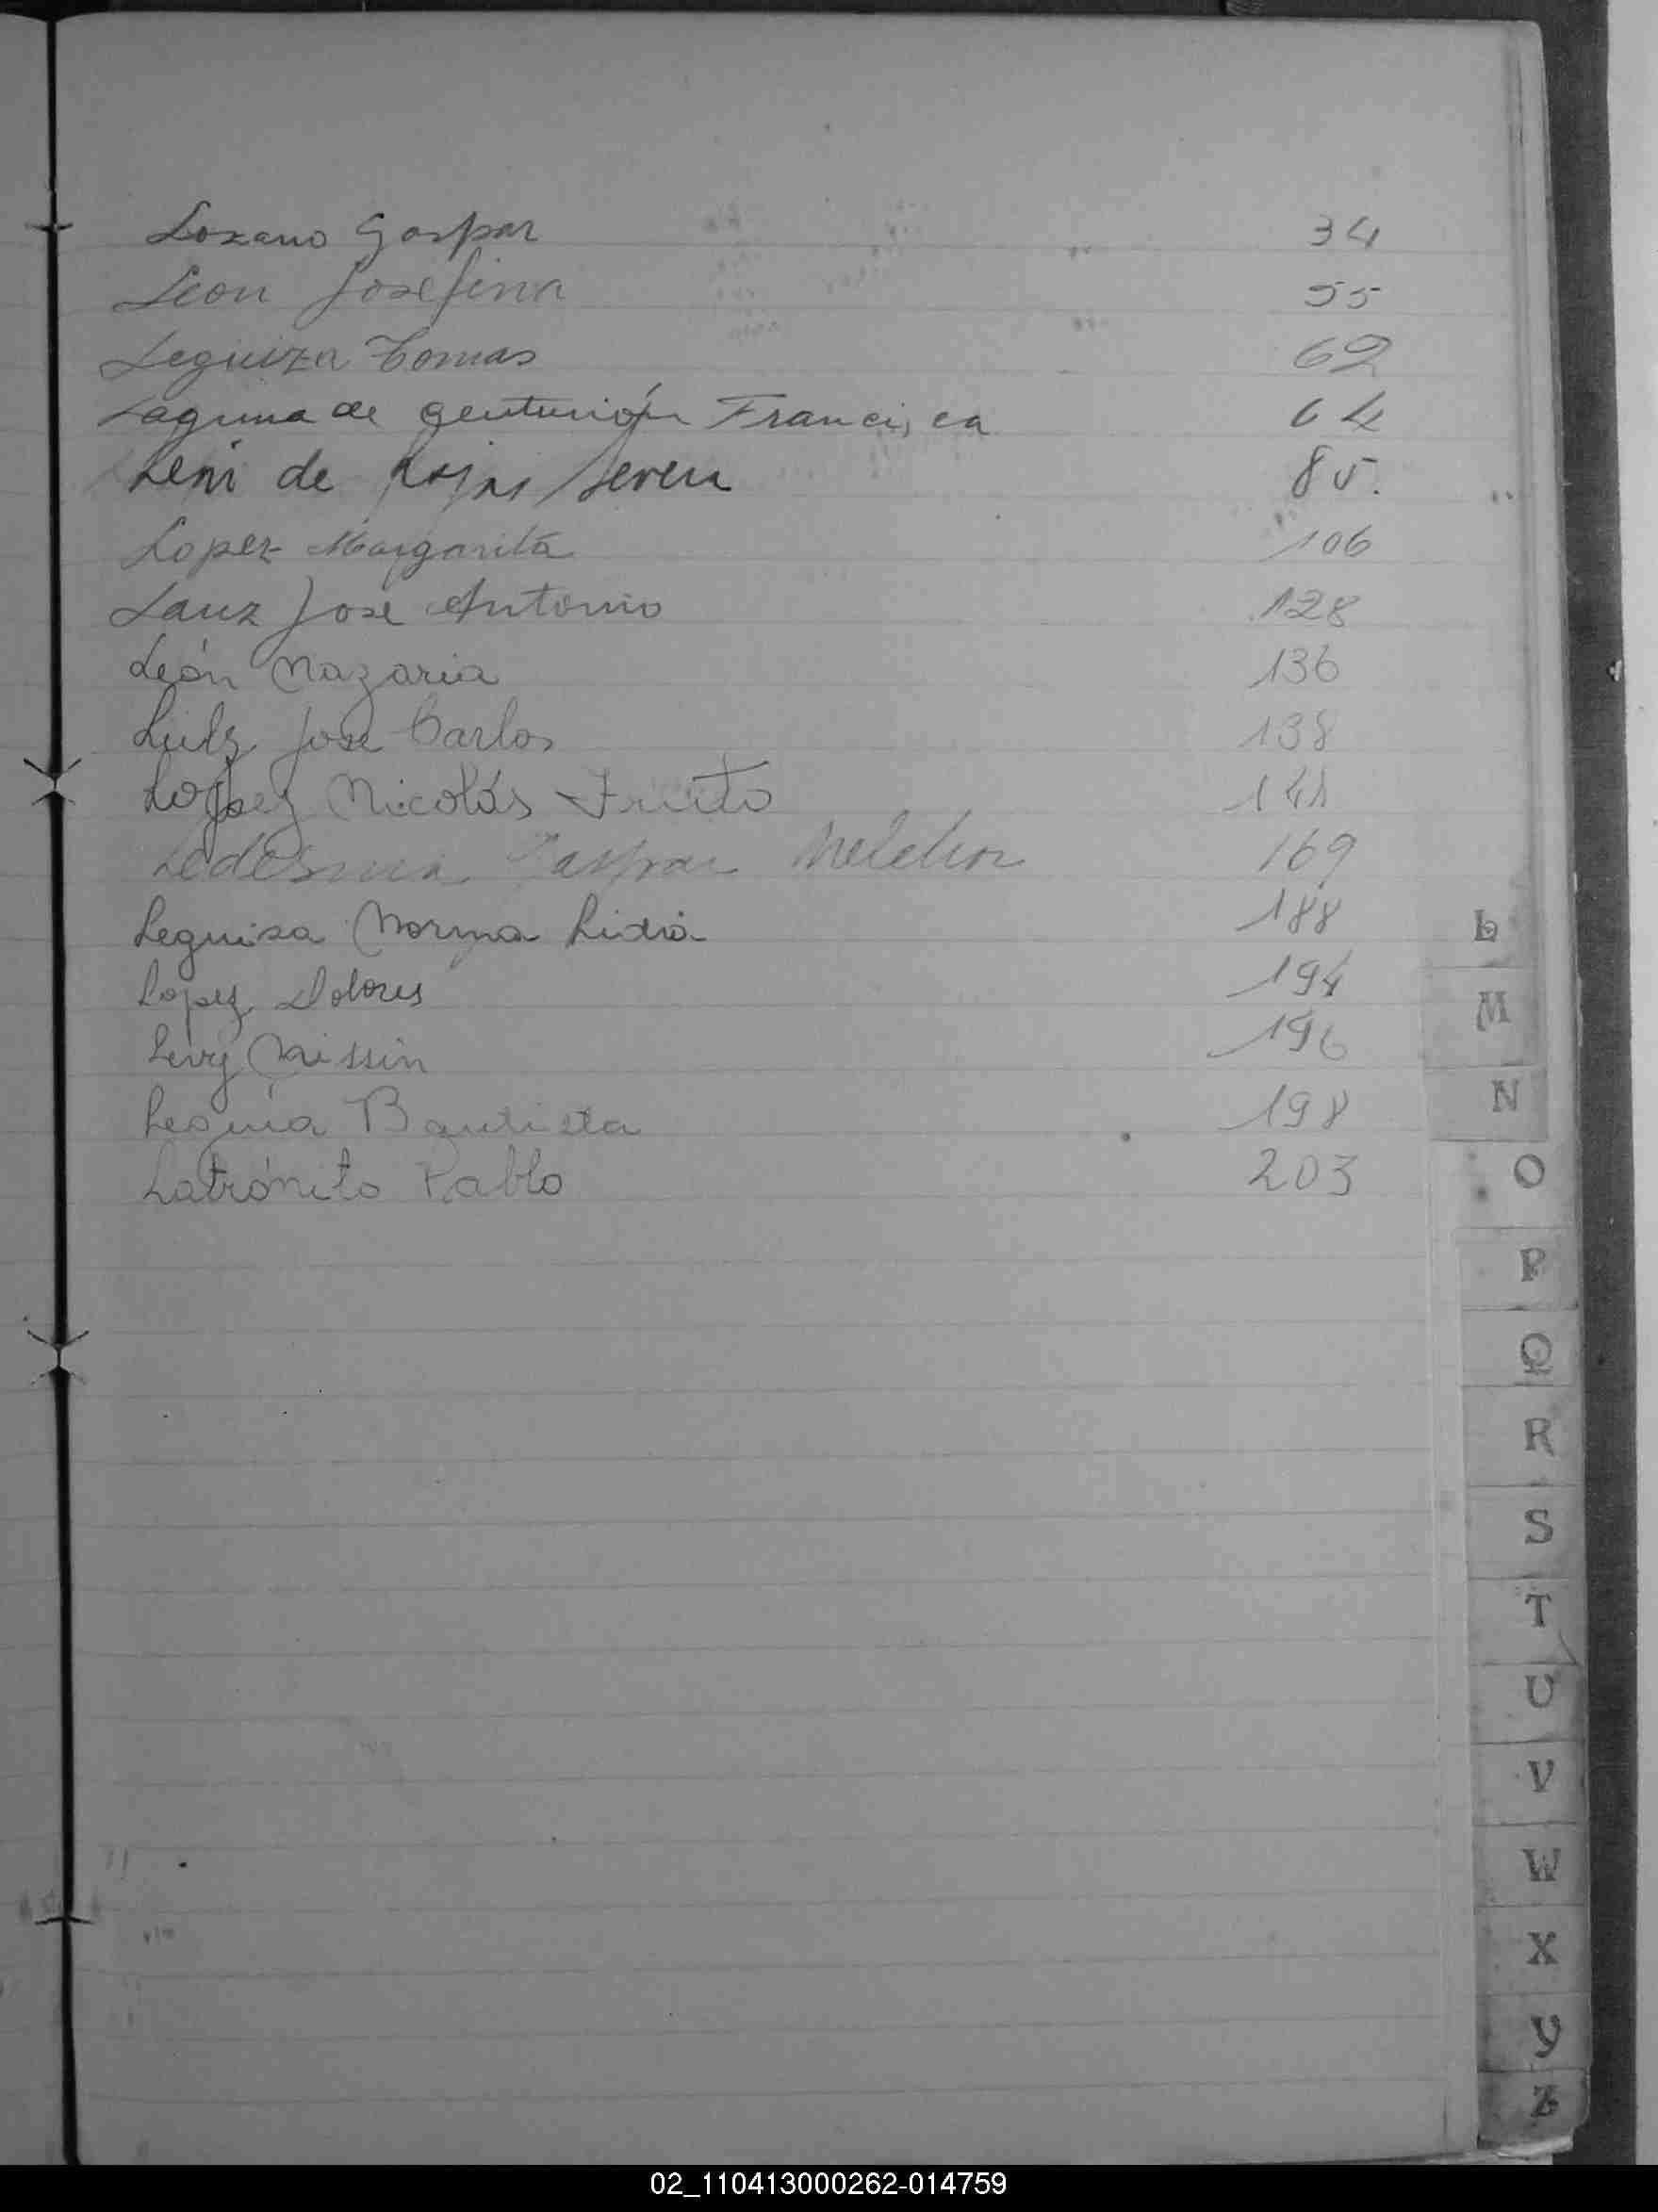 Lozano Gaspar 34
Leon Josefina 55
Leguiza Tomas 62
Laguna de Genturión Francisca 64
Leni de Rojas Severa 85.
Lopez Margarita 106
Lauz Jose Antonio 128
León Nazaria 136
José Carlos 138
López Nicolás Fruto
Ledesma Gaspar Melchor 169
Leguisa Norma Lidia 188
Lopez Dolores 194
Levy Nissin 196
Bautista 198
Latrónito Pablo 203
L
M
N
O
P
Q
R
S
T
U
V
W
X
Y
Z
02_110413000262-014759